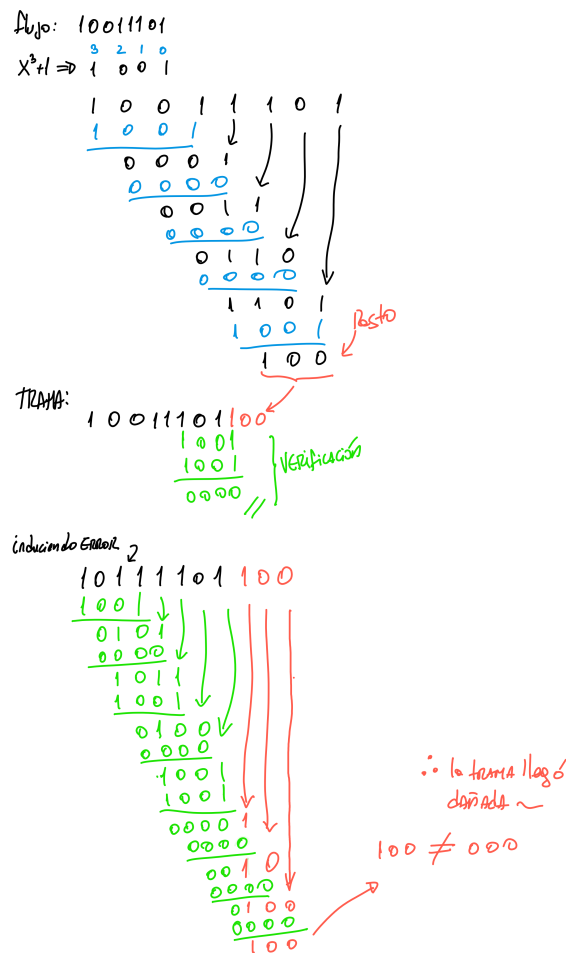 flujo: 10011101
3 2 1 0
X³+1 ⇒ 1 0 0 1
1 0 0 1 1 1 0 1
1 0 0 1
0 0 0 1
0 0 0 0
0 0 1 1
0 0 0 0
0 1 1 0
0 0 0 0
1 1 0 1
1 0 0 1
Resto
1 0 0
TRAMA:
1 0 0 1 1 1 0 1 1 0 0
1 0 0 1
1 0 0 1
VERIFICACIÓN
0 0 0 0
induciendo ERROR
1 0 1 1 1 1 0 1 1 0 0
1 0 0 1
0 1 0 1
0 0 0 0
1 0 1 1
1 0 0 1
0 1 0 0
0 0 0 0
1 0 0 1
1 0 0 1
0 0 0 0 1
0 0 0 0
0 0 1 0
0 0 0 0
0 1 0 0
0 0 0 0
1 0 0
∴ la TRAMA llegó
DAÑADA ~
100 ≠ 000